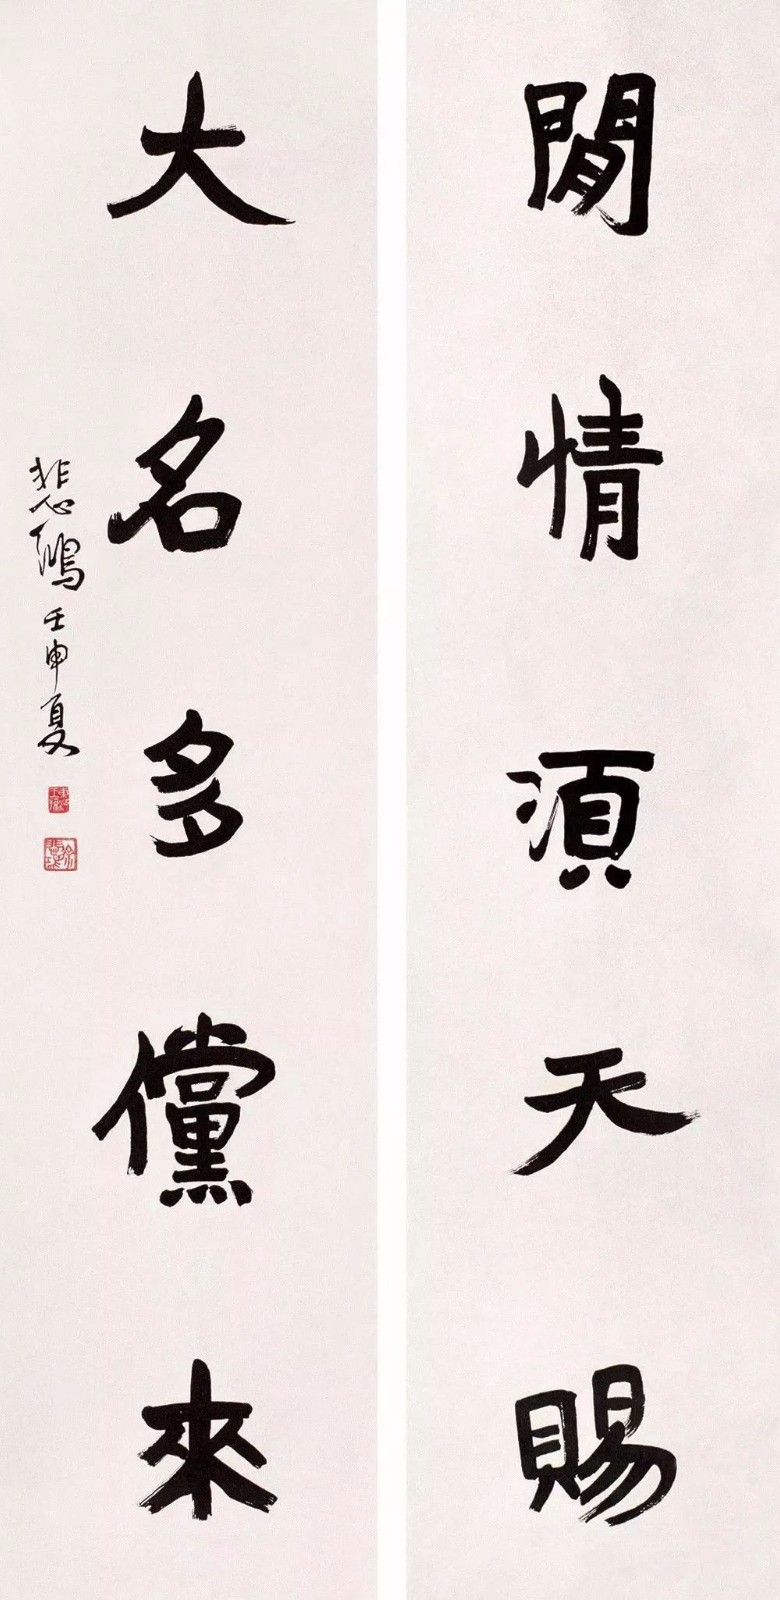 閒情須天賜
大名多儻來
悲鴻壬申夏